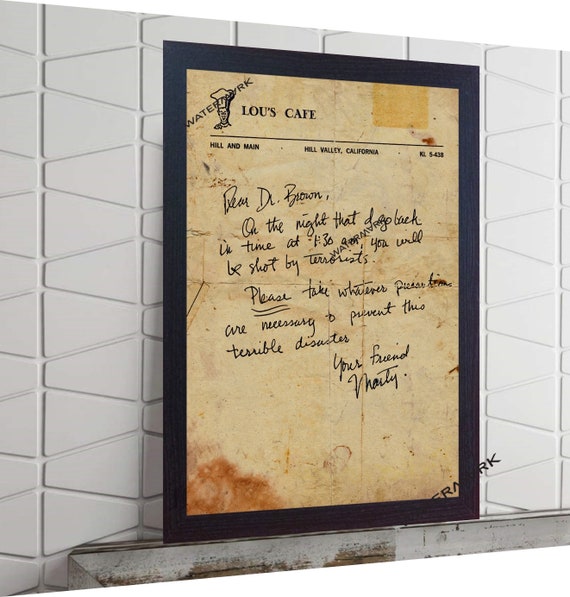 WATERMARK
LOU'S CAFE
HILL AND MAIN · HILL VALLEY, CALIFORNIA · KL 5-438
Dear Dr. Brown,
On the night that I go back
in time at 1:30 am, you will
WATERMARK
be shot by terrorists.
Please take whatever precautions
are necessary to prevent this
terrible disaster
Your friend
Marty.
WATERMARK